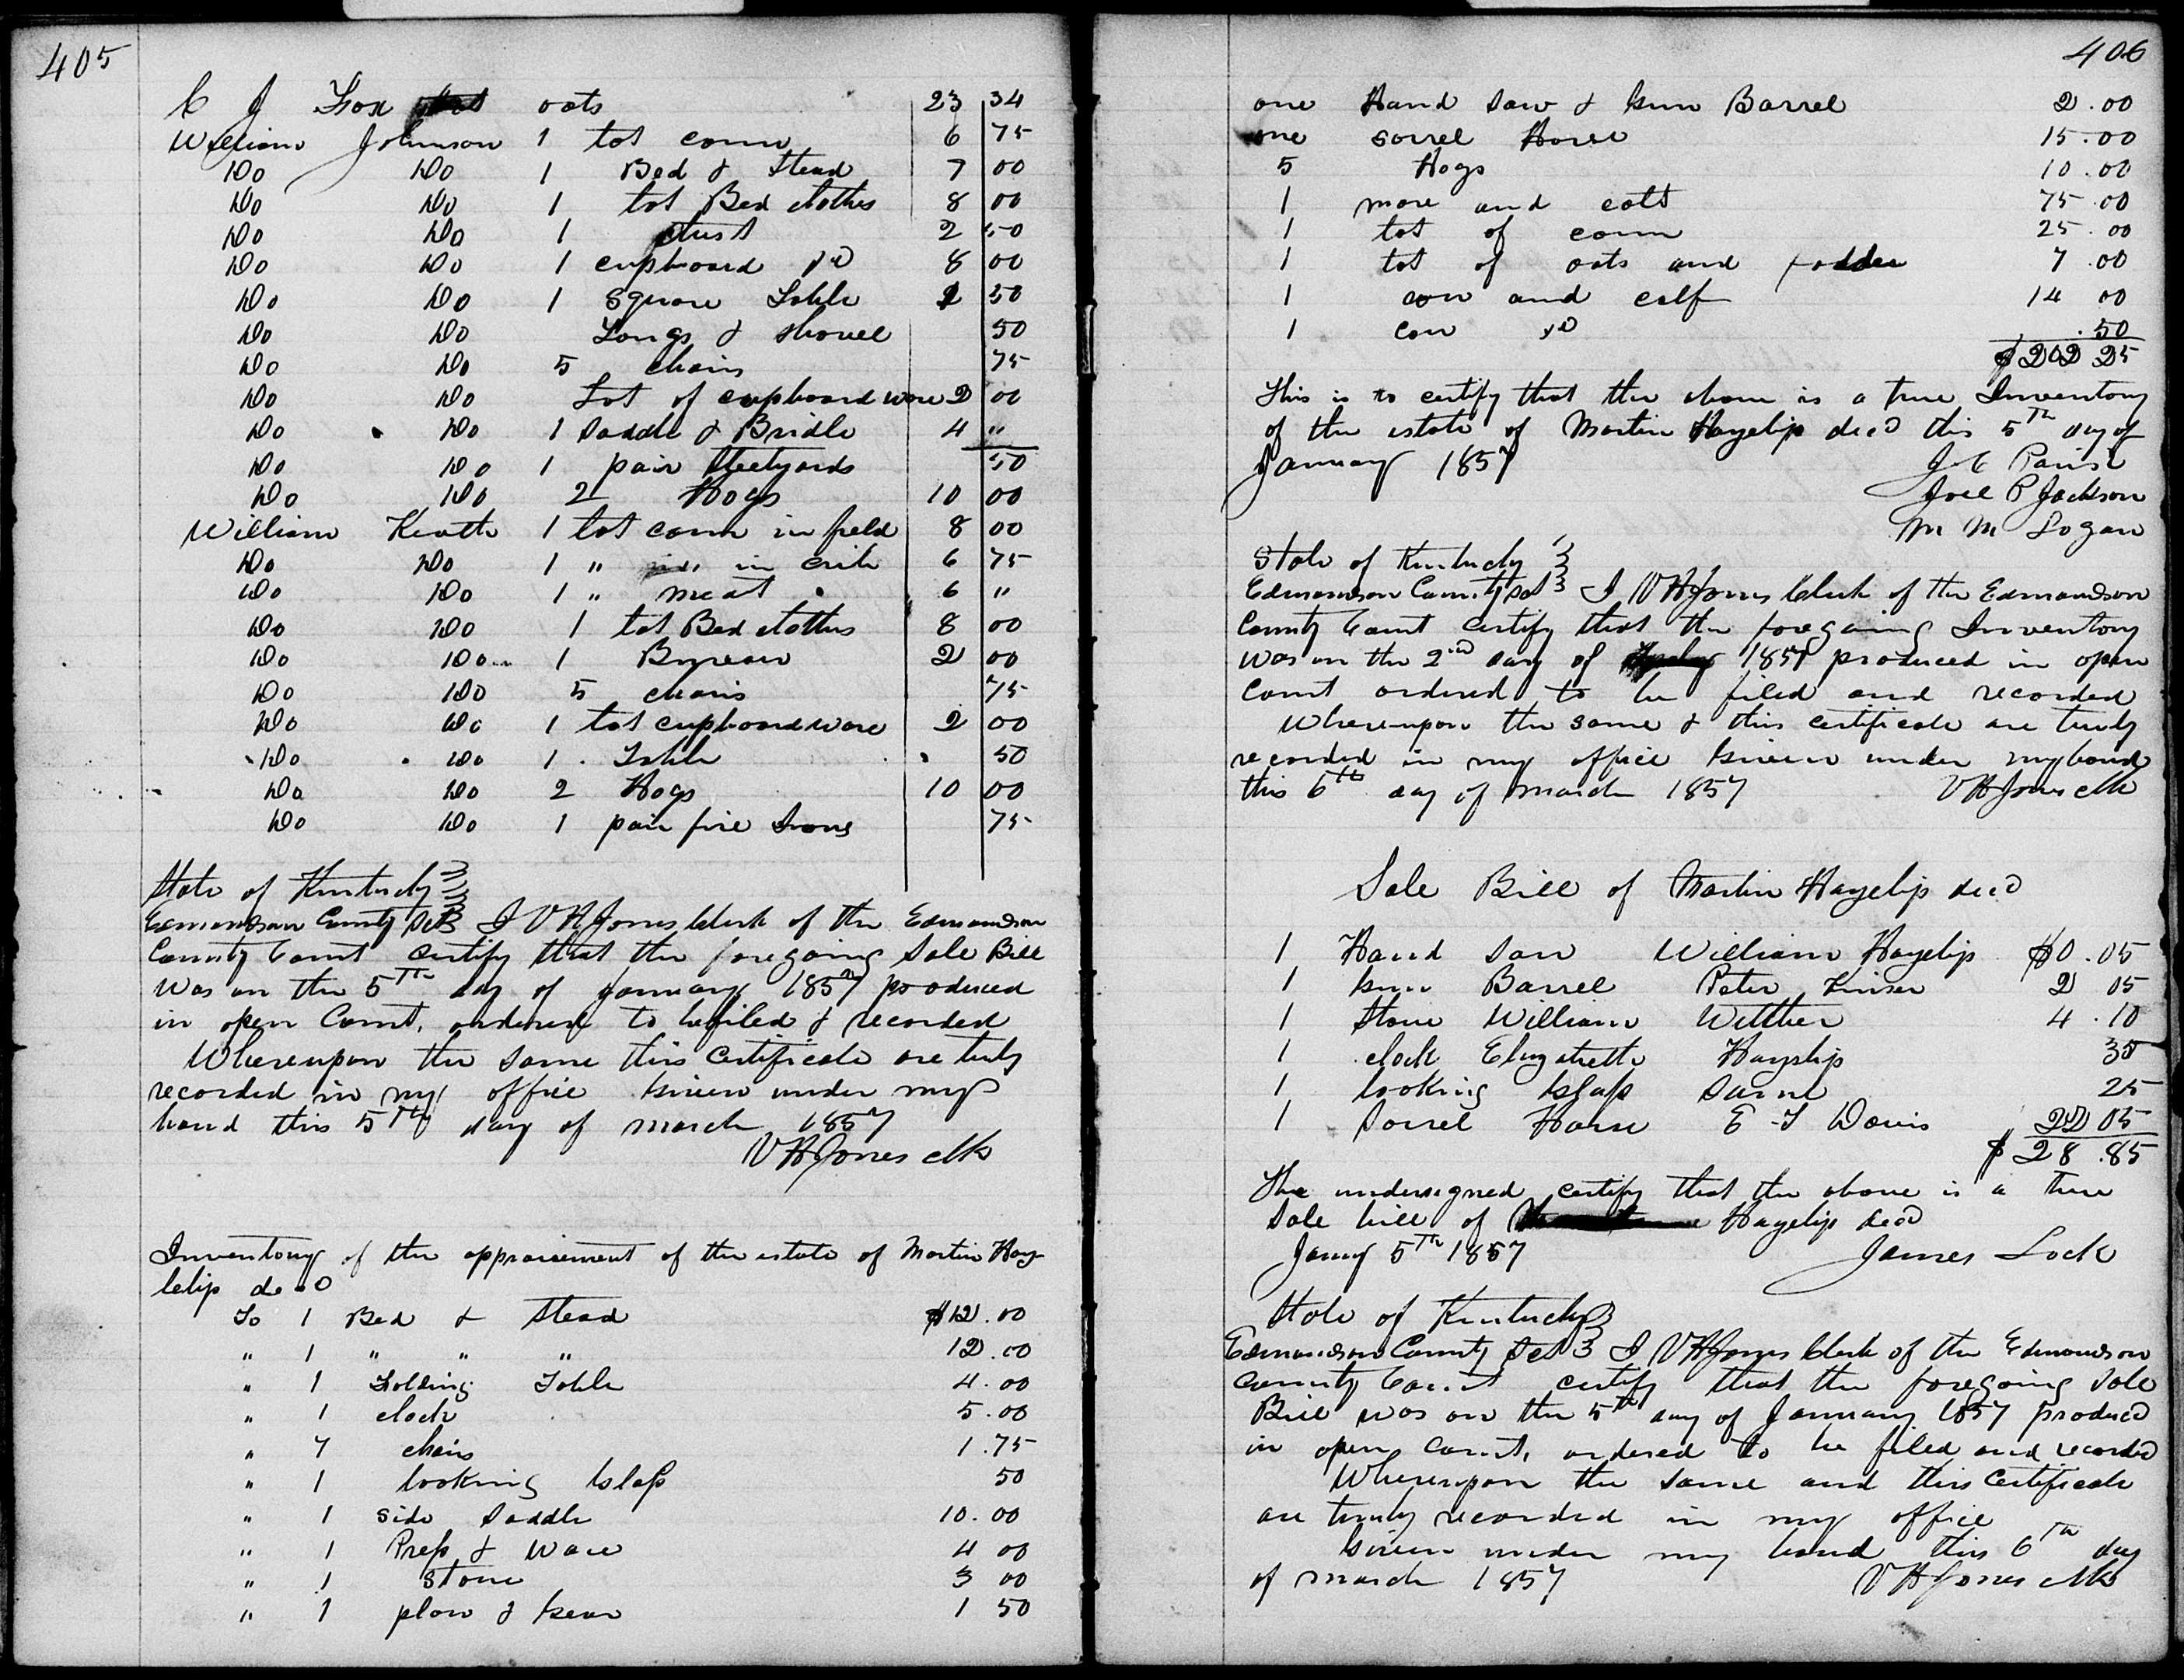 405
C J Fox oats 23 34
William Johnson 1 lot corn 6 75
Do Do 1 Bed & Stead 7 00
Do Do 1 lot Bed clothes 8 00
Do Do 1 chest 2 50
Do Do 1 cupboard 8 00
Do Do 1 square Table 2 50
Do Do Tongs & shovel 50
Do Do 5 chairs 75
Do Do Lot of cupboard ware 2 00
Do Do 1 Saddle & Bridle 4 "
Do Do 1 pair Steelyards 50
Do Do 2 Hogs 10 00
William Keath 1 lot corn in field 8 00
Do Do 1 " " in crib 6 75
Do Do 1 " meat 6 "
Do Do 1 lot Bed clothes 8 00
Do Do 1 Bureau 2 00
Do Do 5 chairs 75
Do Do 1 lot cupboardware 2 00
Do Do 1 Table 50
Do Do 2 Hogs 10 00
Do Do 1 pair fire Irons 75
State of Kentucky
Edmondson County Sct I V H Jones Clerk of the Edmondson
County Court certify that the foregoing Sale Bill
was on the 5th day of January 1857 produced
in open Court, ordered to be filed & recorded
Whereupon the same this certificate are truly
recorded in my office Given under my
hand this 5th day of march 1857
V H Jones clk
Inventory of the appraisement of the estate of Martin Hay-
lelip decd
To 1 Bed & Stead $12.00
" 1 " " " 12.00
" 1 Folding Table 4.00
" 1 clock 5.00
" 7 chairs 1.75
" 1 looking Glass 50
" 1 side Saddle 10.00
" 1 Press & Ware 4 00
" 1 Stove 3 00
" 1 plow & Gear 1 50
406
one Hand Saw & Gun Barrel 2.00
one sorrel Horse 15.00
5 Hogs 10.00
1 mare and colt 75.00
1 lot of corn 25.00
1 lot of oats and fodder 7.00
1 cow and calf 14 00
1 cow .50
$202 25
This is to certify that the above is a true Inventory
of the estate of Martin Hayelip decd this 5th day of
January 1857
J C Parish
Joel P Jackson
M M Logan
State of Kentucky
Edmondson County Sct I V H Jones Clerk of the Edmondson
County Court certify that the foregoing Inventory
was on the 2nd day of 1857 produced in open
Court ordered to be filed and recorded
Whereupon the same & this certificate are truly
recorded in my office Given under my hand
this 6th day of march 1857 V H Jones clk
Sale Bill of Martin Hayelip decd
1 Hand Saw William Hayelip $0.05
1 Gun Barrel Peter Kinser 2 05
1 Stove William Witther 4.10
1 clock Elizabeth Hayelip 35
1 looking Glass Same 25
1 Sorrel Horse E T Davis 22 05
$ 28.85
The undersigned certify that the above is a true
Sale bill of Hayelip decd
Jany 5th 1857 James Lock
State of Kentucky
Edmondson County Sct I V H Jones Clerk of the Edmondson
County Court certify that the foregoing Sale
Bill was on the 5th day of January 1857 produced
in open Court, ordered to be filed and recorded
Whereupon the same and this certificate
are truly recorded in my office
Given under my hand this 6th day
of march 1857 V H Jones clk